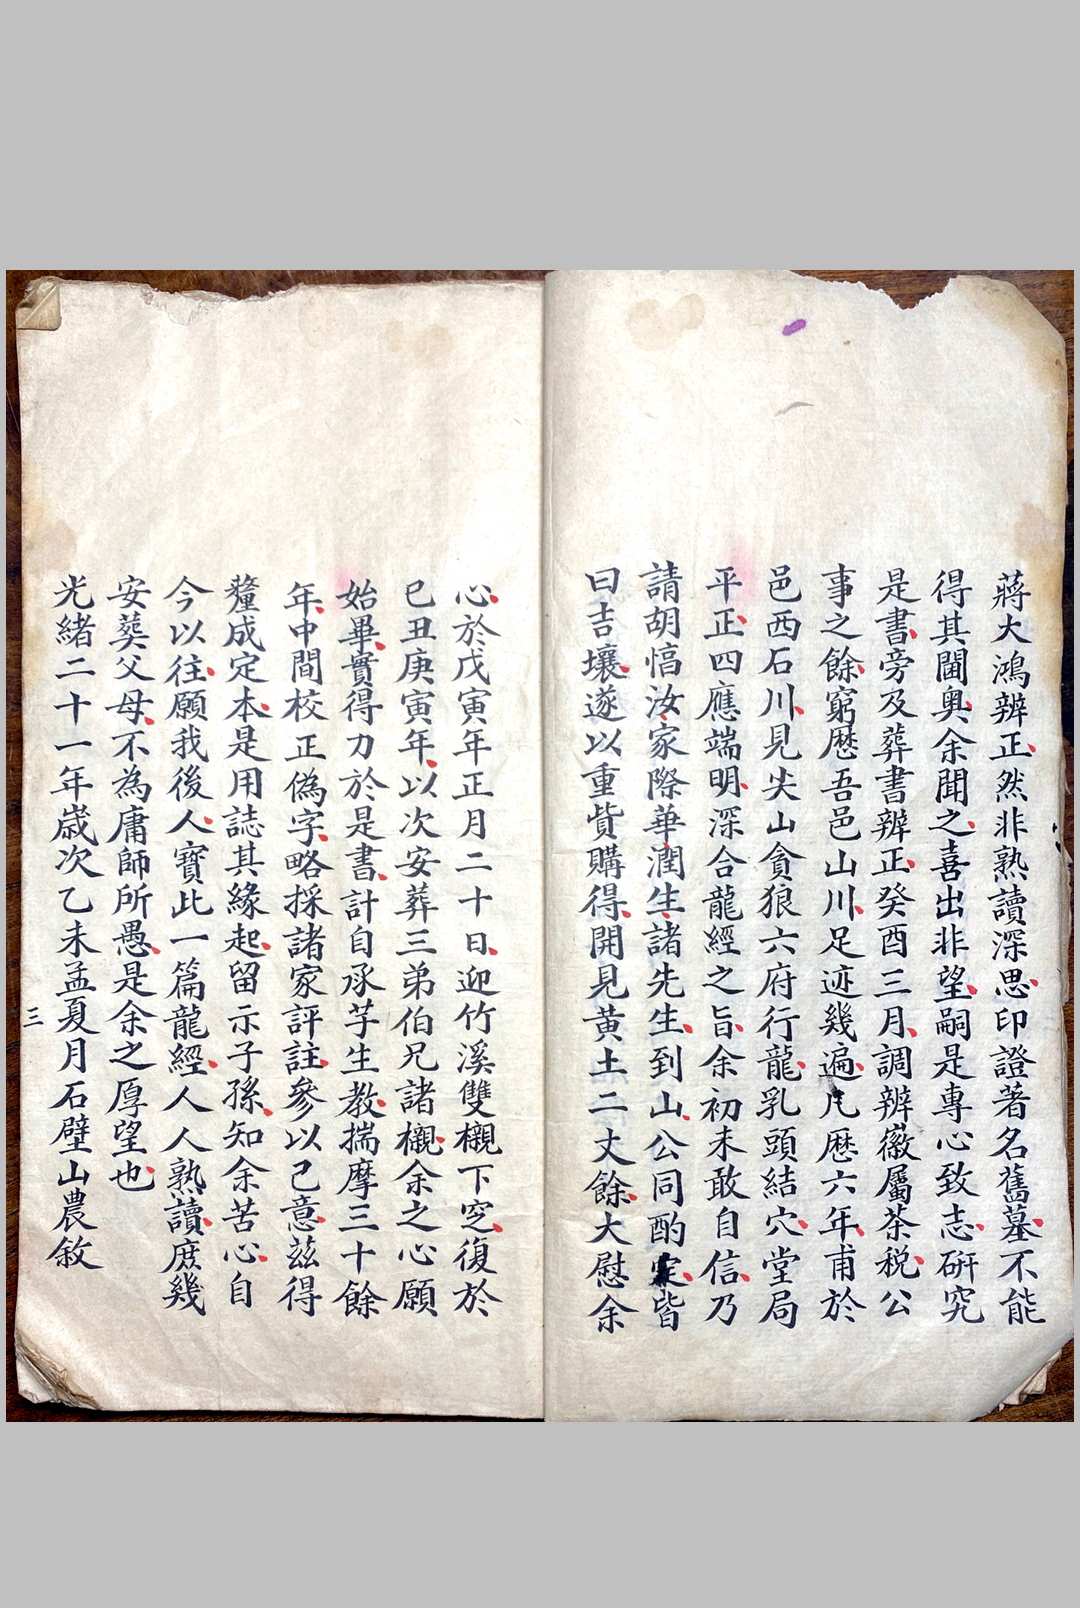 蔣大鴻辨正然非熟讀深思印證著名舊墓不能
得其閫奧余聞之喜出非望嗣是專心致志研究
是書旁及葬書辨正癸酉三月調辦徽屬茶税公
事之餘窮歷吾邑山川足迹幾遍凡歷六年甫於
邑西石川見尖山貪狼六府行龍乳頭結穴堂局
平正四應端明深合龍經之旨余初未敢自信乃
請胡愊汝家際華潤生諸先生到山公同酌定皆
曰吉壤遂以重貲購得開見黃土二丈餘大慰余
心於戊寅年正月二十日迎竹溪雙櫬下窆復於
已丑庚寅年以次安葬三弟伯兄諸櫬余之心願
始畢實得力於是書計自承芋生教揣摩三十餘
年中間校正偽字略採諸家評註參以己意茲得
釐成定本是用誌其緣起留示子孫知余苦心自
今以往願我後人寳此一篇龍經人人熟讀庶幾
安葬父母不為庸師所愚是余之厚望也
光緒二十一年歲次乙未孟夏月石壁山農敘
三